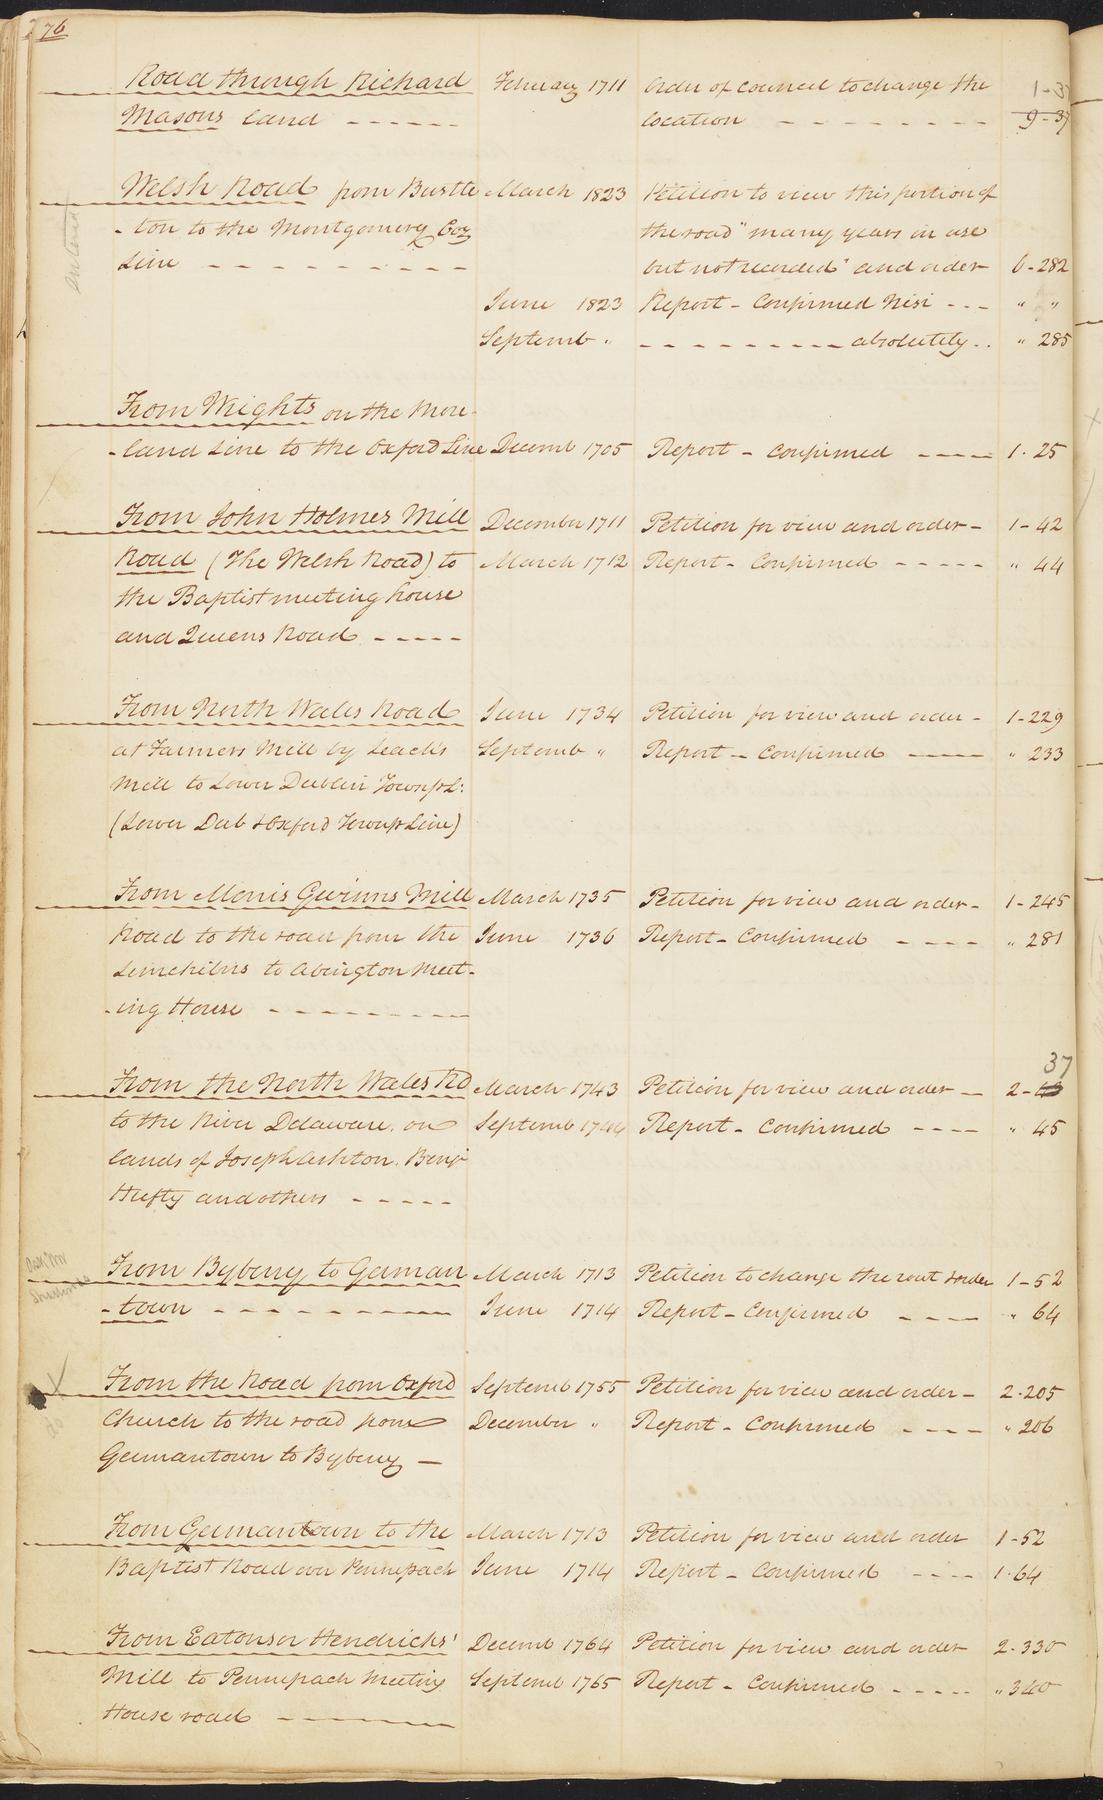 276
Road through Richard February 1711 Order of council to change the 1-37
Masons land ------ location -------- 9-37
Welsh Road from Bustle March 1823 Petition to view this portion of
-ton to the Montgomery Coy the road "many years in use
Line --------- but not recorded" and order 6-282
June 1823 Report - Confirmed Nisi --- " "
Septemb " --------- absolutely.. " 285
From Wrights on the More-
-land Line to the Oxford Line Decemb 1705 Report - Confirmed ---- 1.25
From John Holmes Mill December 1711 Petition for view and order- 1-42
Road (The Welsh Road) to March 1712 Report - Confirmed ----- " 44
the Baptist meeting house
and Queens Road -----
From North Wales Road June 1734 Petition for view and order - 1-229
at Farmers Mill by Leach's Septemb " Report - Confirmed ---- " 233
Mill to Lower Dublin Townsp L:
(Lower Dub & Oxford Townsp Line)
From Morris Gwinns Mill March 1735 Petition for view and order- 1-245
Road to the road from the June 1736 Report - Confirmed ---- " 281
Limekilns to Abington Meet-
-ing House ---------
37
From the North Wales Rd March 1743 Petition for view and order - 2-
to the River Delaware. on Septemb 1744 Report - Confirmed ---- " 45
lands of Joseph Ashton. Benjn
Hufty and others -----
From Byberry to German March 1713 Petition to change the rout & order 1-52
-town --------- June 1714 Report - Confirmed ---- " 64
From the Road from Oxford Septemb 1755 Petition for view and order - 2.205
Church to the road from December " Report - Confirmed ---- " 206
Germantown to Byberry -
From Germantown to the March 1713 Petition for view and order 1-52
Baptist Road over Pennepach June 1714 Report - Confirmed ---- 1.64
From Eatons or Hendricks' Decemb 1764 Petition for view and order 2.330
Mill to Pennepach Meeting Septemb 1765 Report - Confirmed ----- " 340
House road ------